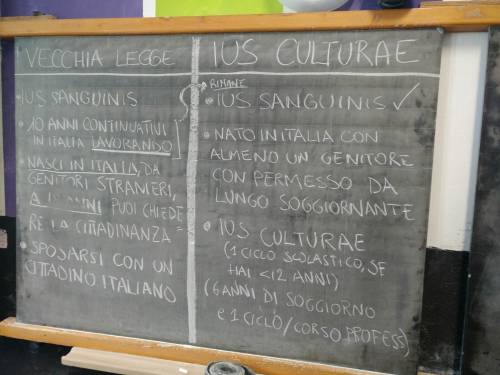 VECCHIA LEGGE
• IUS SANGUINIS
• 10 ANNI CONTINUATIVI
IN ITALIA LAVORANDO
• NASCI IN ITALIA, DA
GENITORI STRANIERI,
A PUOI CHIEDE=
RE LA CITTADINANZA
• SPOSARSI CON UN
CITTADINO ITALIANO
IUS CULTURAE
RIMANE
• IUS SANGUINIS ✓
• NATO IN ITALIA CON
ALMENO UN GENITORE
CON PERMESSO DA
LUNGO SOGGIORNANTE
• IUS CULTURAE
(1 CICLO SCOLASTICO, SE
HAI <12 ANNI)
(6 ANNI DI SOGGIORNO
e 1 CICLO/CORSO PROFESS)